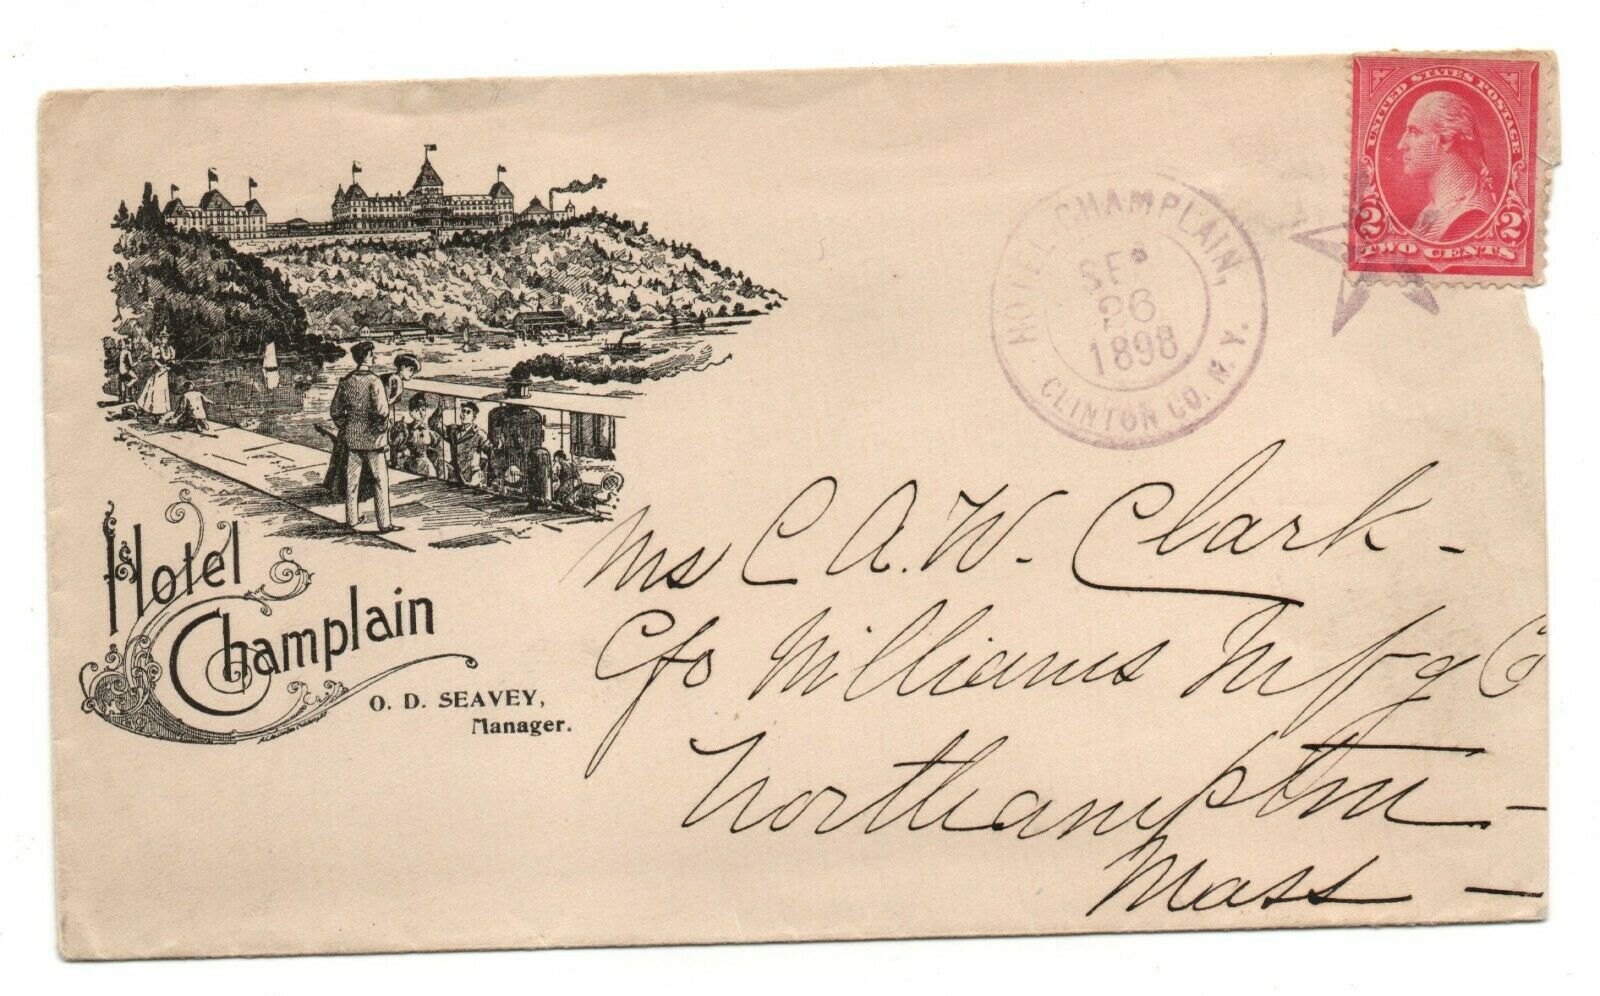 Hotel
Champlain
O. D. SEAVEY,
Manager.
HOTEL CHAMPLAIN,
SEP
26
1898
CLINTON CO. N. Y.
UNITED STATES POSTAGE
2 2
TWO CENTS
C A. W. Clark -
C/o Williams Mfg Co
Northampton -
Mass -